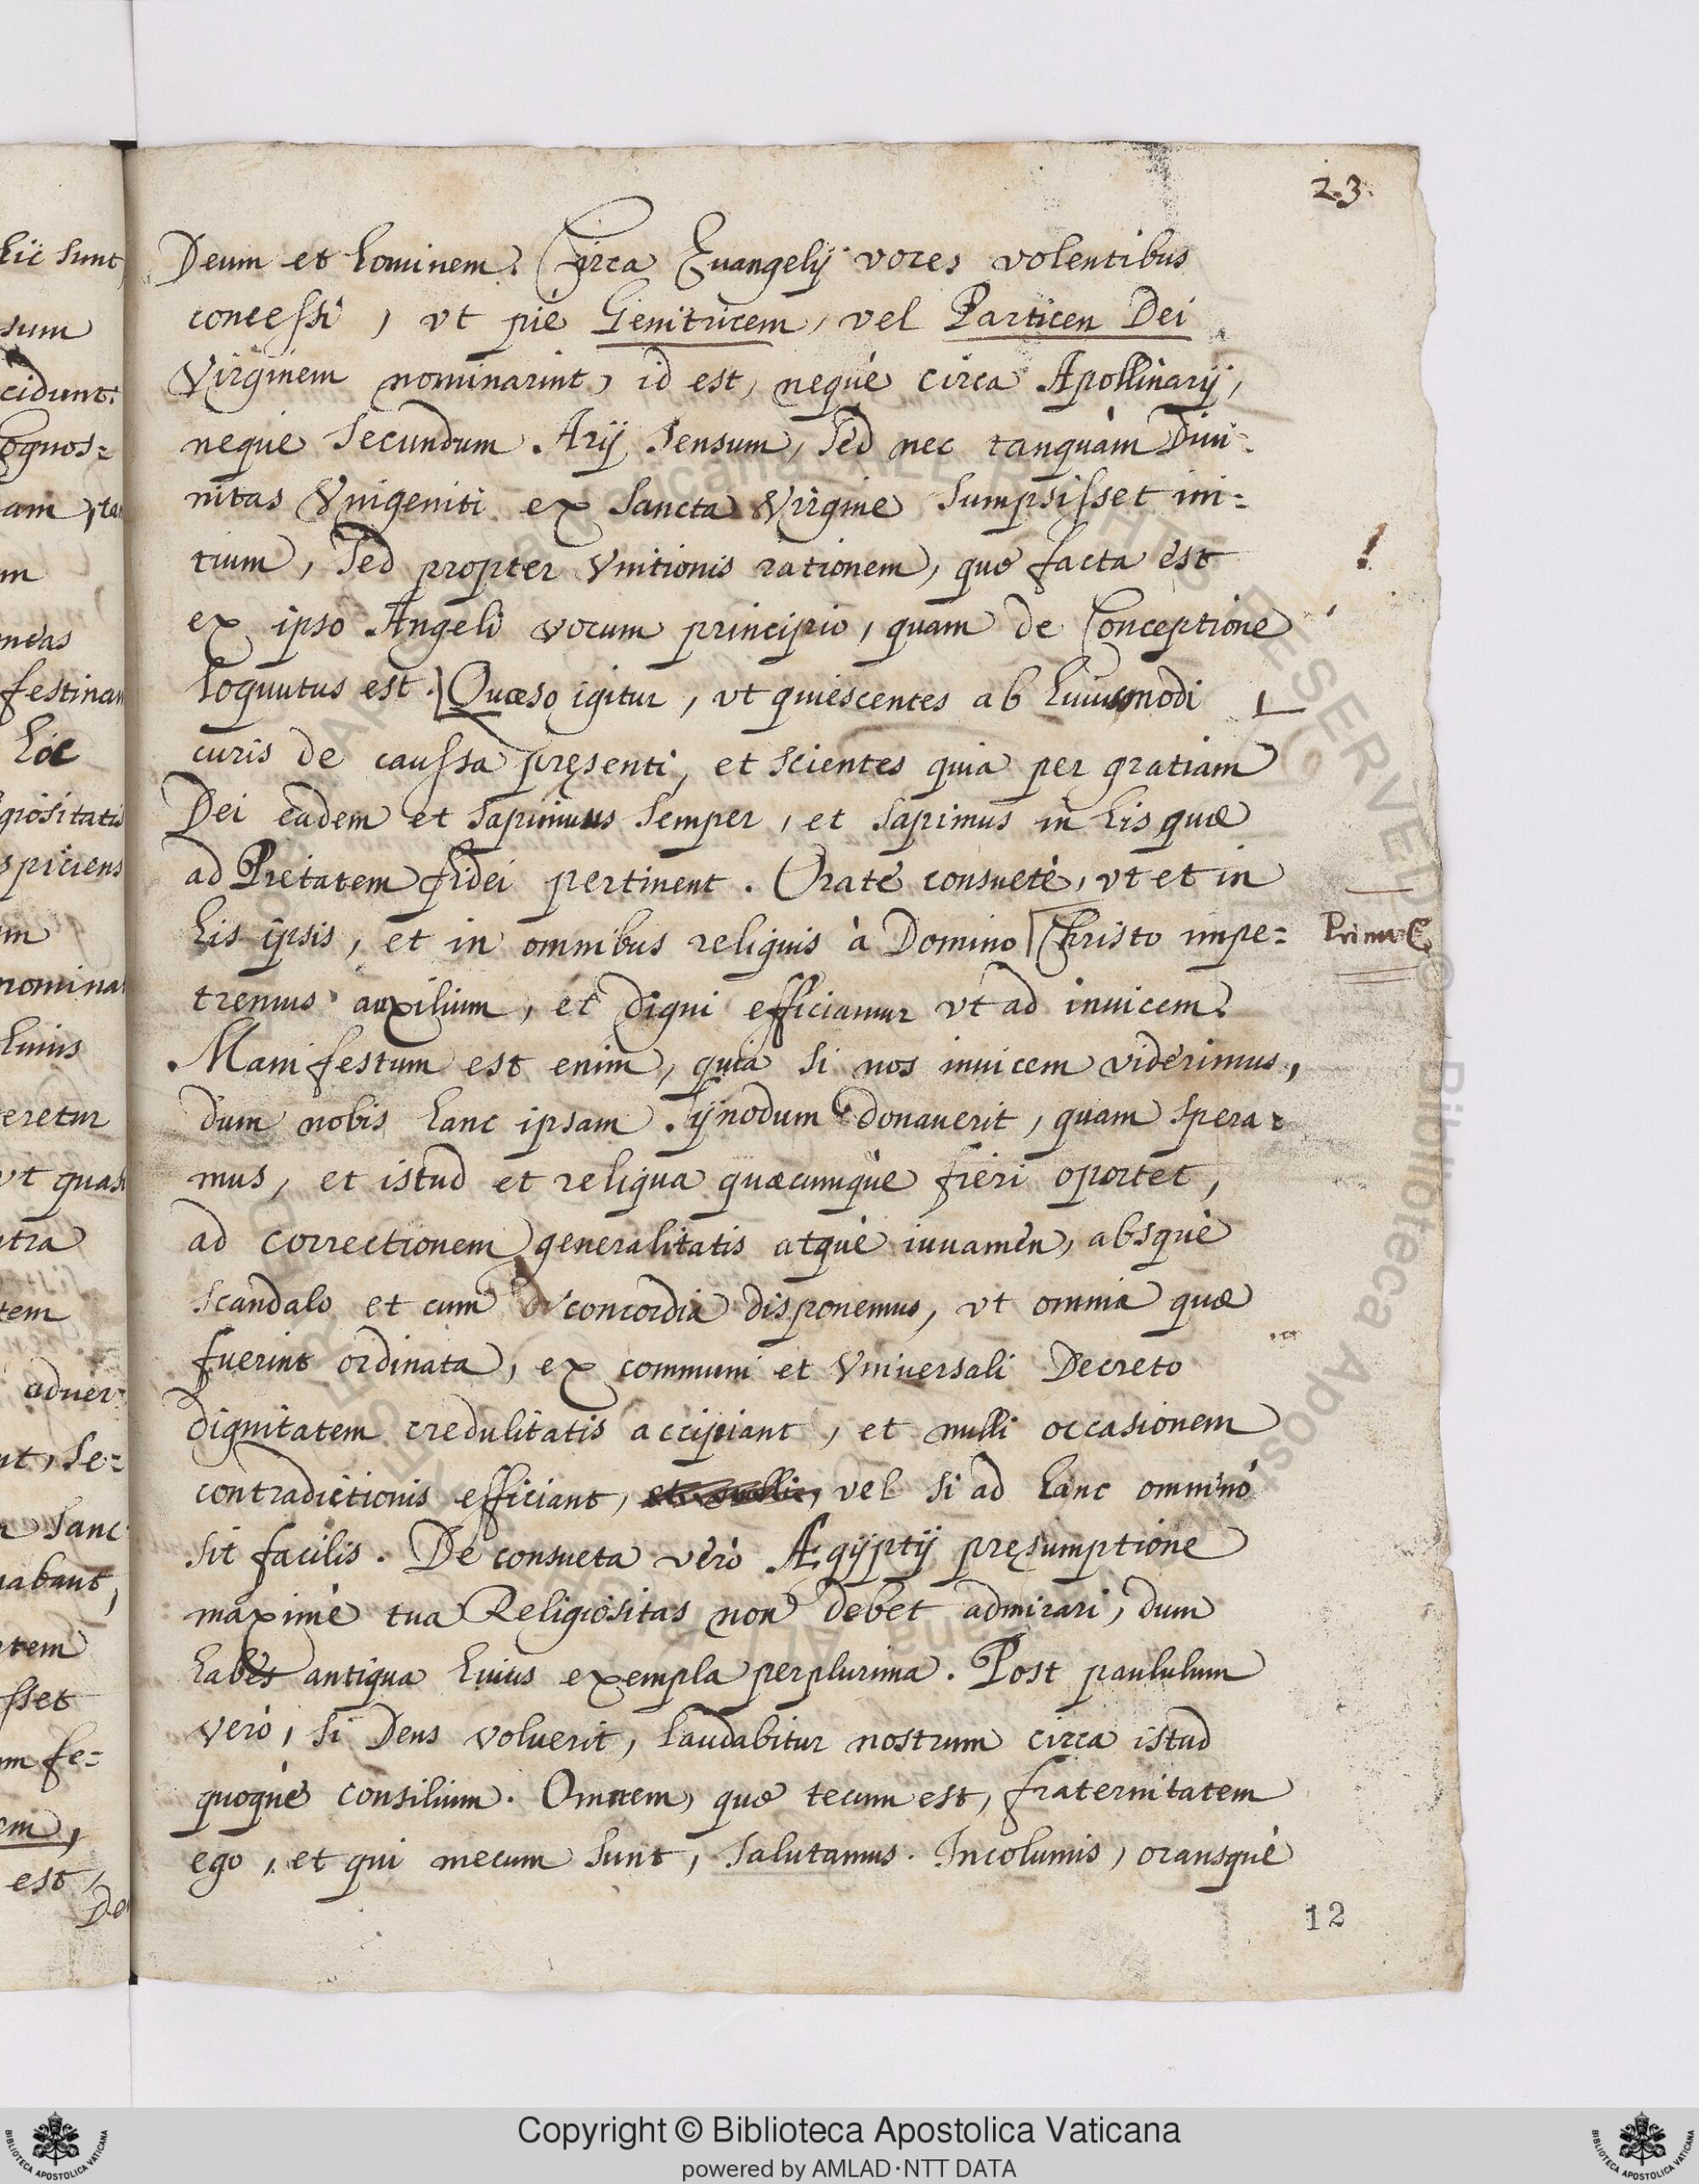 23.
Deum et hominem. Circa Euangelij voces volentibus
concessi, vt pie Genitricem, vel Particen Dei
Virginem nominarint, id est, neque circa Apollinarij,
neque secundum Arij sensum, sed nec tanquàm Diui=
nitas Vnigeniti ex sancta Virgine sumpsisset ini=
tium, sed propter Vnitionis rationem, que facta est
ex ipso Angeli vocum principio, quam de Conceptione
loquutus est. Quæso igitur, vt quiescentes ab huiusmodi
curis de caussa pręsenti, et scientes quia per gratiam
Dei eadem et sapimus semper, et sapimus in his quæ
ad Pietatem fidei pertinent. Orate consuetè, vt et in
his ipsis, et in omnibus reliquis à Domino Christo impe=
tremus auxilium, et digni efficiamur vt ad inuicem.
Manifestum est enim, quia si nos inuicem viderimus,
dum nobis hanc ipsam Synodum donauerit, quam spera=
mus, et istud et reliqua quæcumque fieri oportet,
ad correctionem generalitatis atque iuuamen, absque
scandalo et cum concordia disponemus, vt omnia quæ
fuerint ordinata, ex communi et Vniuersali Decreto
dignitatem credulitatis accipiant, et nulli occasionem
contradictionis efficiant, et nulli, vel si ad hanc omninò
sit facilis. De consueta verò Ægyptij pręsumptione
maximè tua Religiositas non debet admirari, dum
habet antiqua huius exempla perplurima. Post paululum
verò, si Deus voluerit, laudabitur nostrum circa istud
quoque consilium. Omnem, que tecum est, fraternitatem
ego, et qui mecum sunt, salutamus. Incolumis, oransque
12
hic sunt
sum
cidunt.
ognos=
am, ta
m
meas
festinan
hoc
giositatis
spiciens
m
nomina
huius
eretur
vt quasi
ntra
tem
aduer=
nt, se=
sanc
abant,
tem
sset
m fe=
em,
est,
De
Copyright © Biblioteca Apostolica Vaticana
powered by AMLAD·NTT DATA